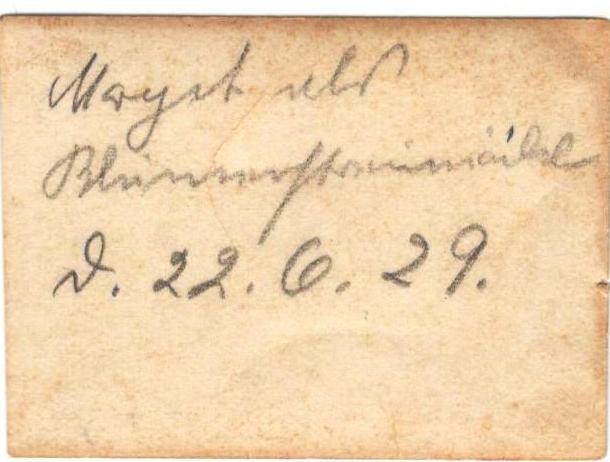 Margit als
Blumenstreumädel
d. 22. 6. 29.